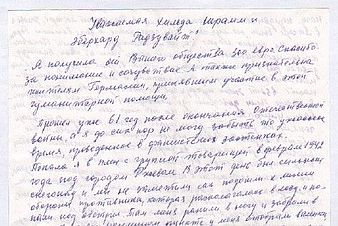 Уважаемая Хильда
Эберхард Радзувайт!
Я получила от Вашего общества 300 евро. Спасибо
за понимание и сочувствие. А также признательна
жителям Германии, принявшим участие в этой
гуманитарной помощи.
Прошел уже 61 год после окончания Отечественной
войны, а я до сих пор не могу забыть то ужасное
время, проведенное в фашистских застенках.
Попала я в плен с группой товарищей в феврале 1942
года под городом Ржевом. В этот день был сильный
снегопад и мы не заметили как подошли к линии
обороны противника, которая располагалась в лесу, и по
нам
Там меня ранили в ногу и забрали в
и меня